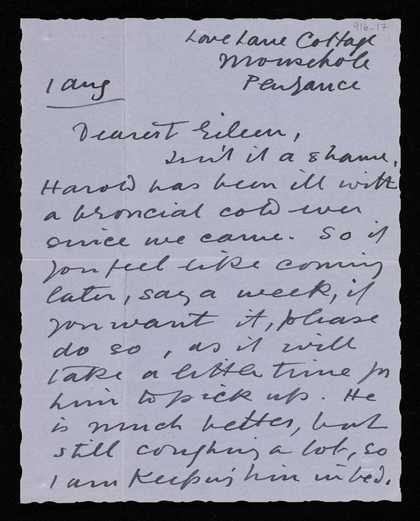 916-17
Love Lane Cottage
Mousehole
Penzance
1 Aug
Dearest Eileen,
Isn't it a shame,
Harold has been ill with
a broncial cold ever
since we came. So if
you feel like coming
later, say a week, if
you want it, please
do so, as it will
take a little time for
him to pick up. He
is much better, but
still coughing a lot, so
I am keeping him in bed.